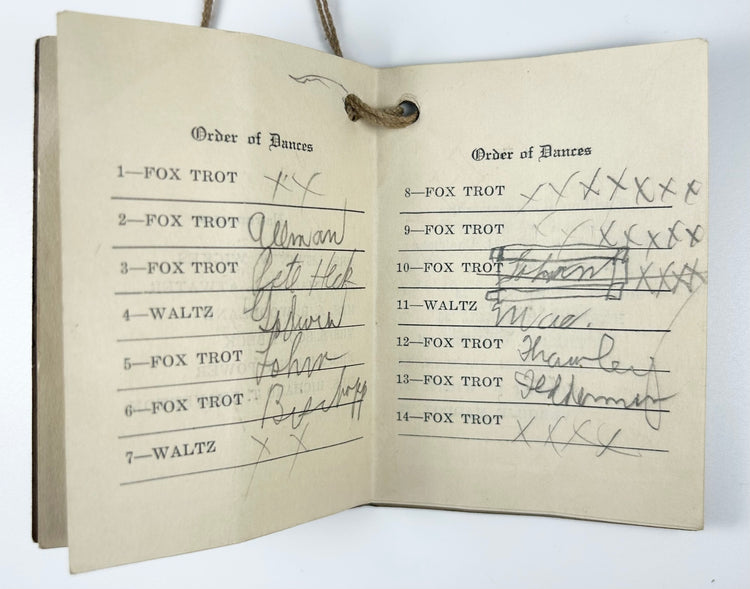 Order of Dances
1—FOX TROT XX
2—FOX TROT Allman
3—FOX TROT Pete Heck
4—WALTZ
5—FOX TROT John
6—FOX TROT Bischoff
7—WALTZ X X
Order of Dances
8—FOX TROT XXXXXXX
9—FOX TROT XXXXXXX
10—FOX TROT John XXXX
11—WALTZ Mac.
12—FOX TROT Thawley
13—FOX TROT Fedderman
14—FOX TROT XXXX